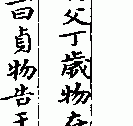 父丁歲物在
曰貞物告于